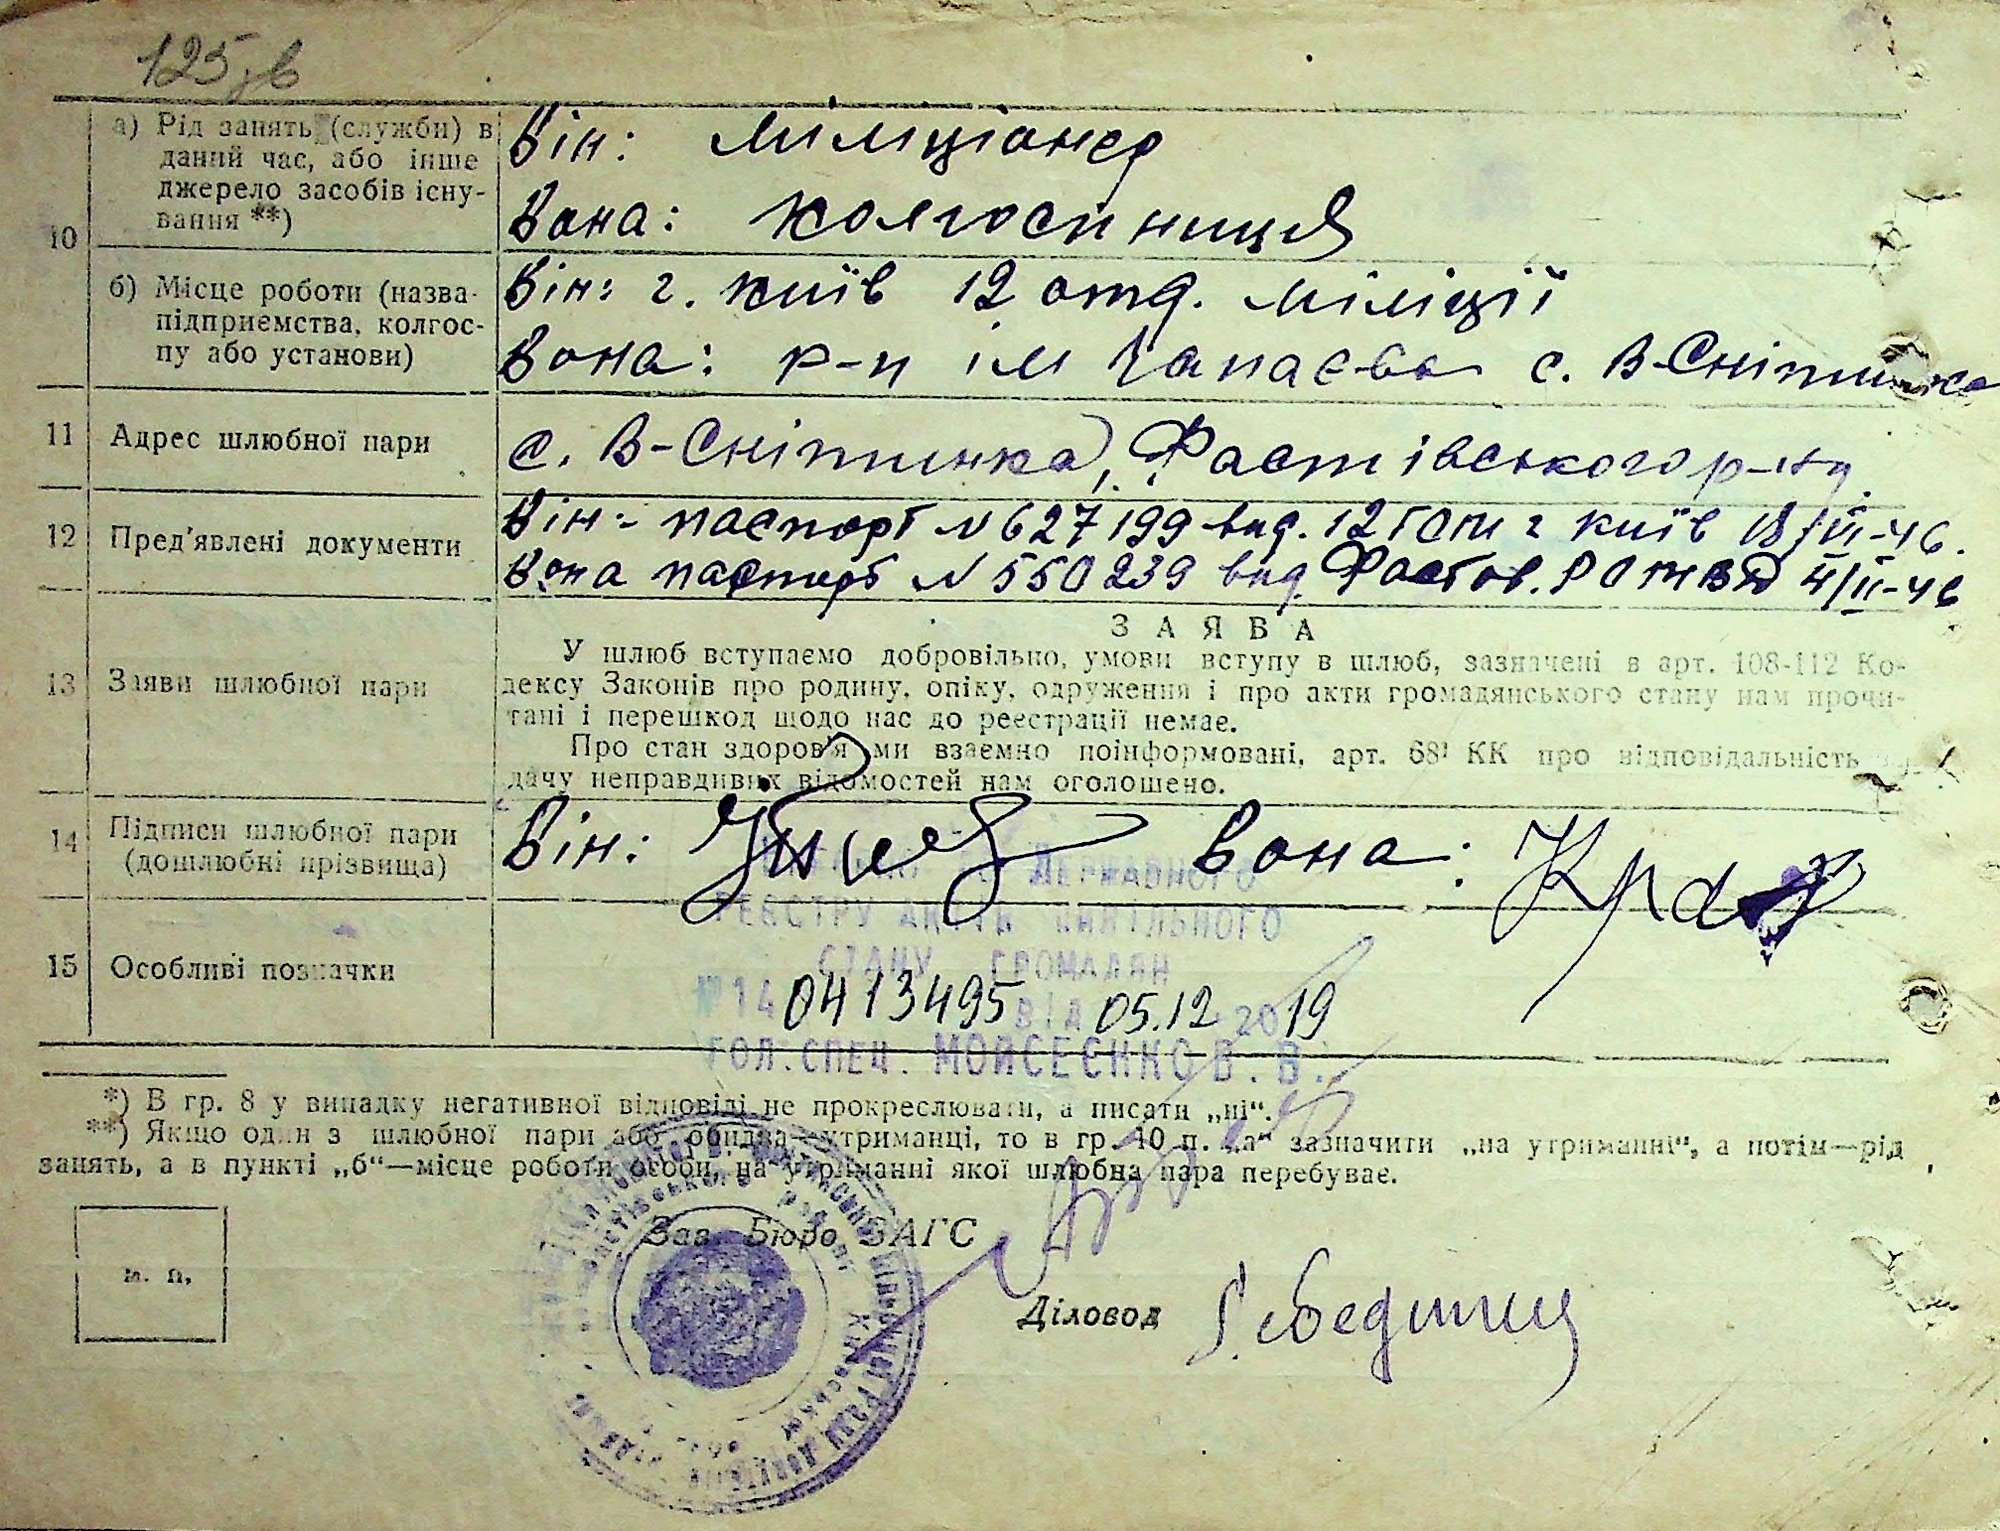 125
10
а) Рід занять (служби) в
даний час, або інше
джерело засобів існу-
вання **)
Він: міліціонер
Вона: колгоспниця
б) Місце роботи (назва
підприємства, колгос-
пу або установи)
Він: г. Київ 12 отд. міліції
Вона: р-п ім Чапаєва с. В-Снітинка
11 Адрес шлюбної пари
с. В-Снітинка, Фастівського р-ну
12 Пред'явлені документи
Він - паспорт № 627199 вид. 12 г Київ /VI-46.
Вона паспорт № 550239 вид. Фастов. РО МВД 4/II-46
13 Заяви шлюбної пари
ЗАЯВА
У шлюб вступаємо добровільно, умови вступу в шлюб, зазначені в арт. 108-112 Ко-
дексу Законів про родину, опіку, одруження і про акти громадянського стану нам прочи-
тані і перешкод щодо нас до реєстрації немає.
Про стан здоров'я ми взаємно поінформовані, арт. 68¹ КК про відповідальність
дачу неправдивих відомостей нам оголошено.
14 Підписи шлюбної пари
(дошлюбні прізвища)
Він: Вона:
15 Особливі позначки
ДЕРЖАВНОГО
РЕЄСТРУ АКТІВ ЦИВІЛЬНОГО
СТАНУ ГРОМАДЯН
№ 14 0413495 ВІД 05.12 2019
ГОЛ. СПЕЦ. МОЙСЕЄНКО В. В.
*) В гр. 8 у випадку негативної відповіді не прокреслювати, а писати „ні“.
**) Якщо один з шлюбної пари або обидва—утриманці, то в гр. 10 п. „а“ зазначити „на утриманні“, а потім—рід
занять, а в пункті „б“—місце роботи особи, на утриманні якої шлюбна пара перебуває.
Зав. Бюро ЗАГС
м. п.
Діловод